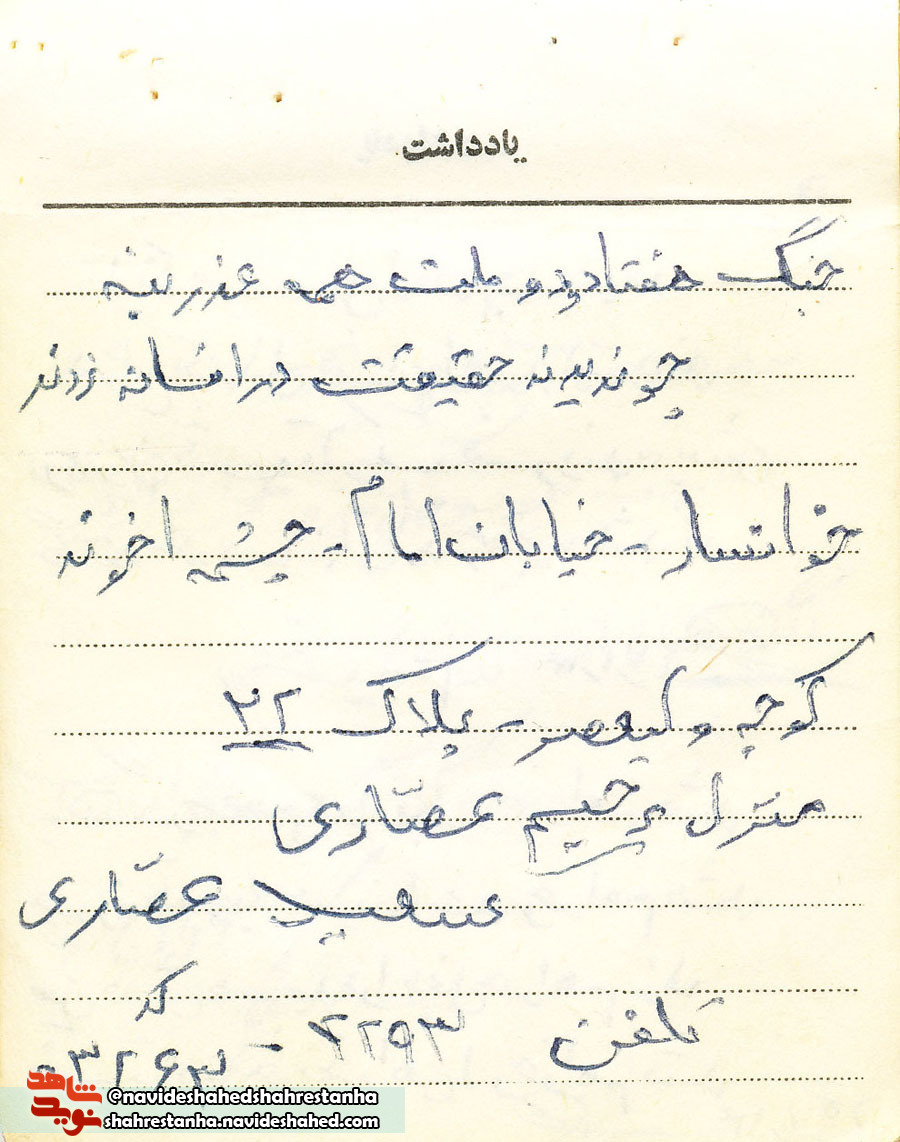 یادداشت
جنگ هفتاد و دو ملت همه عذر بنه
چو ندیدند حقیقت در افسانه زدند
خوانسار - خیابان امام - چشمه اخوند
کوچه ولیعصر - پلاک ۳۲
منزل رحیم عصّاری
سعید عصّاری
تلفن ۲۲۹۳ - کد ۰۳۲۶۳
@navideshahedshahrestanha
shahrestanha.navideshahed.com
نوید شاهد